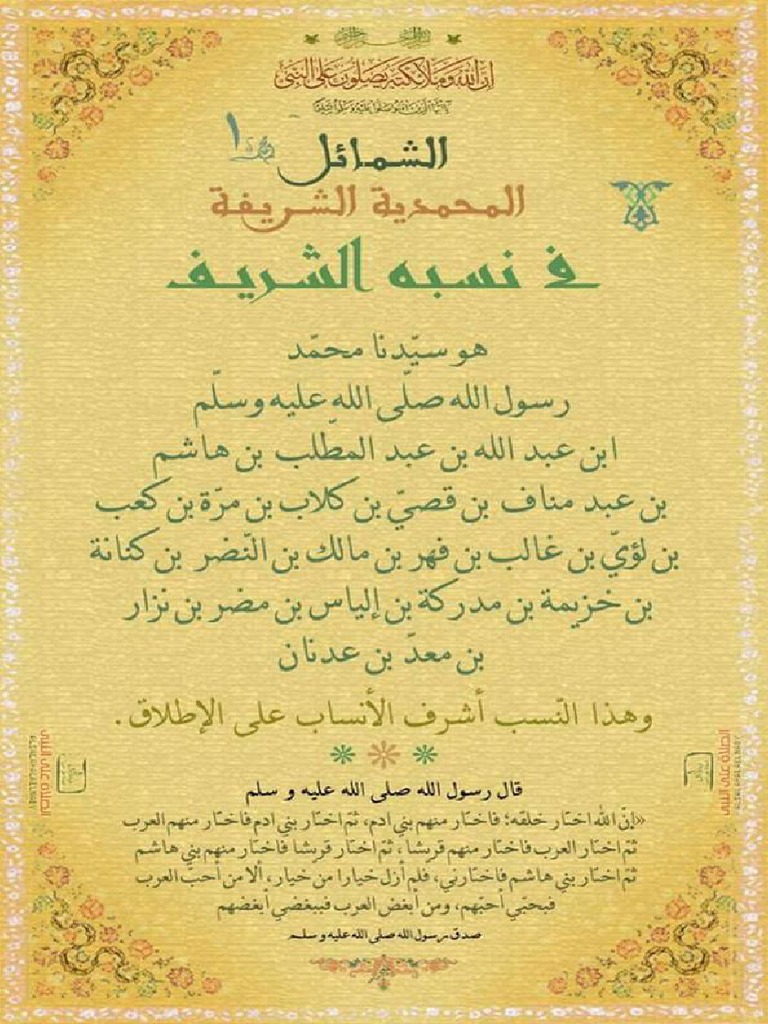 إن الله وملائكته يصلون على النبي
يا أيها الذين آمنوا صلوا عليه وسلموا تسليما
الشمائل
١
المحمدية الشريفة
في نسبه الشريف
هو سيّدنا محمّد
رسول الله صلّى الله عليه وسلّم
ابن عبد الله بن عبد المطّلب بن هاشم
بن عبد مناف بن قصيّ بن كلاب بن مرّة بن كعب
بن لؤيّ بن غالب بن فهر بن مالك بن النّضر بن كنانة
بن خزيمة بن مدركة بن إلياس بن مضر بن نزار
بن معدّ بن عدنان
وهذا النّسب أشرف الأنساب على الإطلاق.
قال رسول الله صلى الله عليه و سلم
«إنّ الله اختار خلقه؛ فاختار منهم بني ادم، ثمّ اختار بني ادم فاختار منهم العرب
ثمّ اختار العرب فاختار منهم قريشا، ثمّ اختار قريشا فاختار منهم بني هاشم
ثمّ اختار بني هاشم فاختارني، فلم أزل خيارا من خيار، ألا من أحبّ العرب
فبحبّي أحبّهم، ومن أبغض العرب فببغضي أبغضهم
صدق رسول الله صلى الله عليه و سلم
الصلاة على النبي